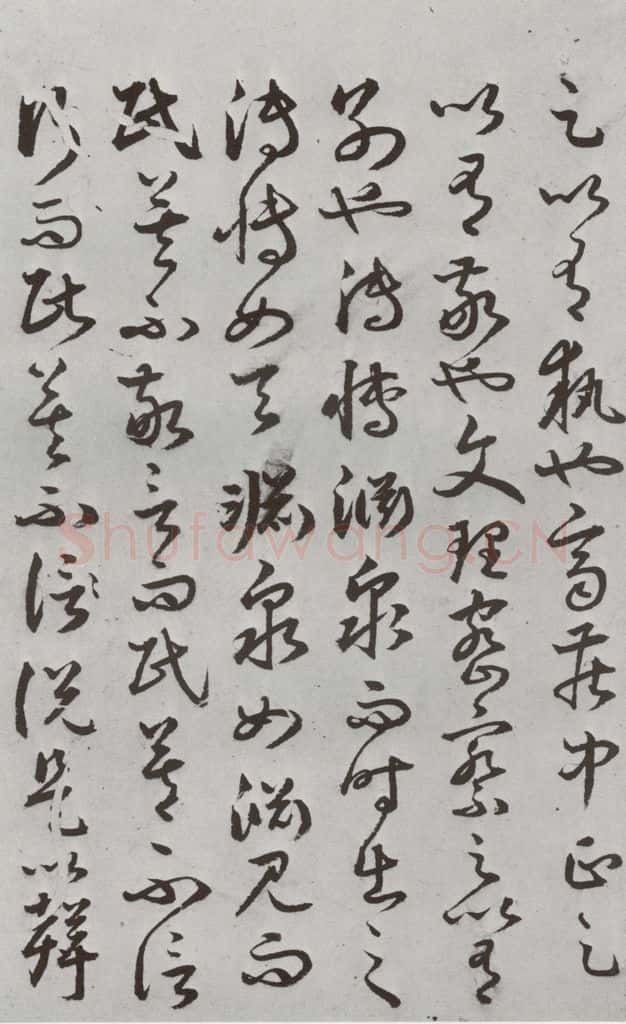 足以有執也齊莊中正足
以有敬也文理密察足以有
別也溥博淵泉而時出之
溥博如天淵泉如淵見而
民莫不敬言而民莫不信
行而民莫不信說是以聲
Shufawang.CN